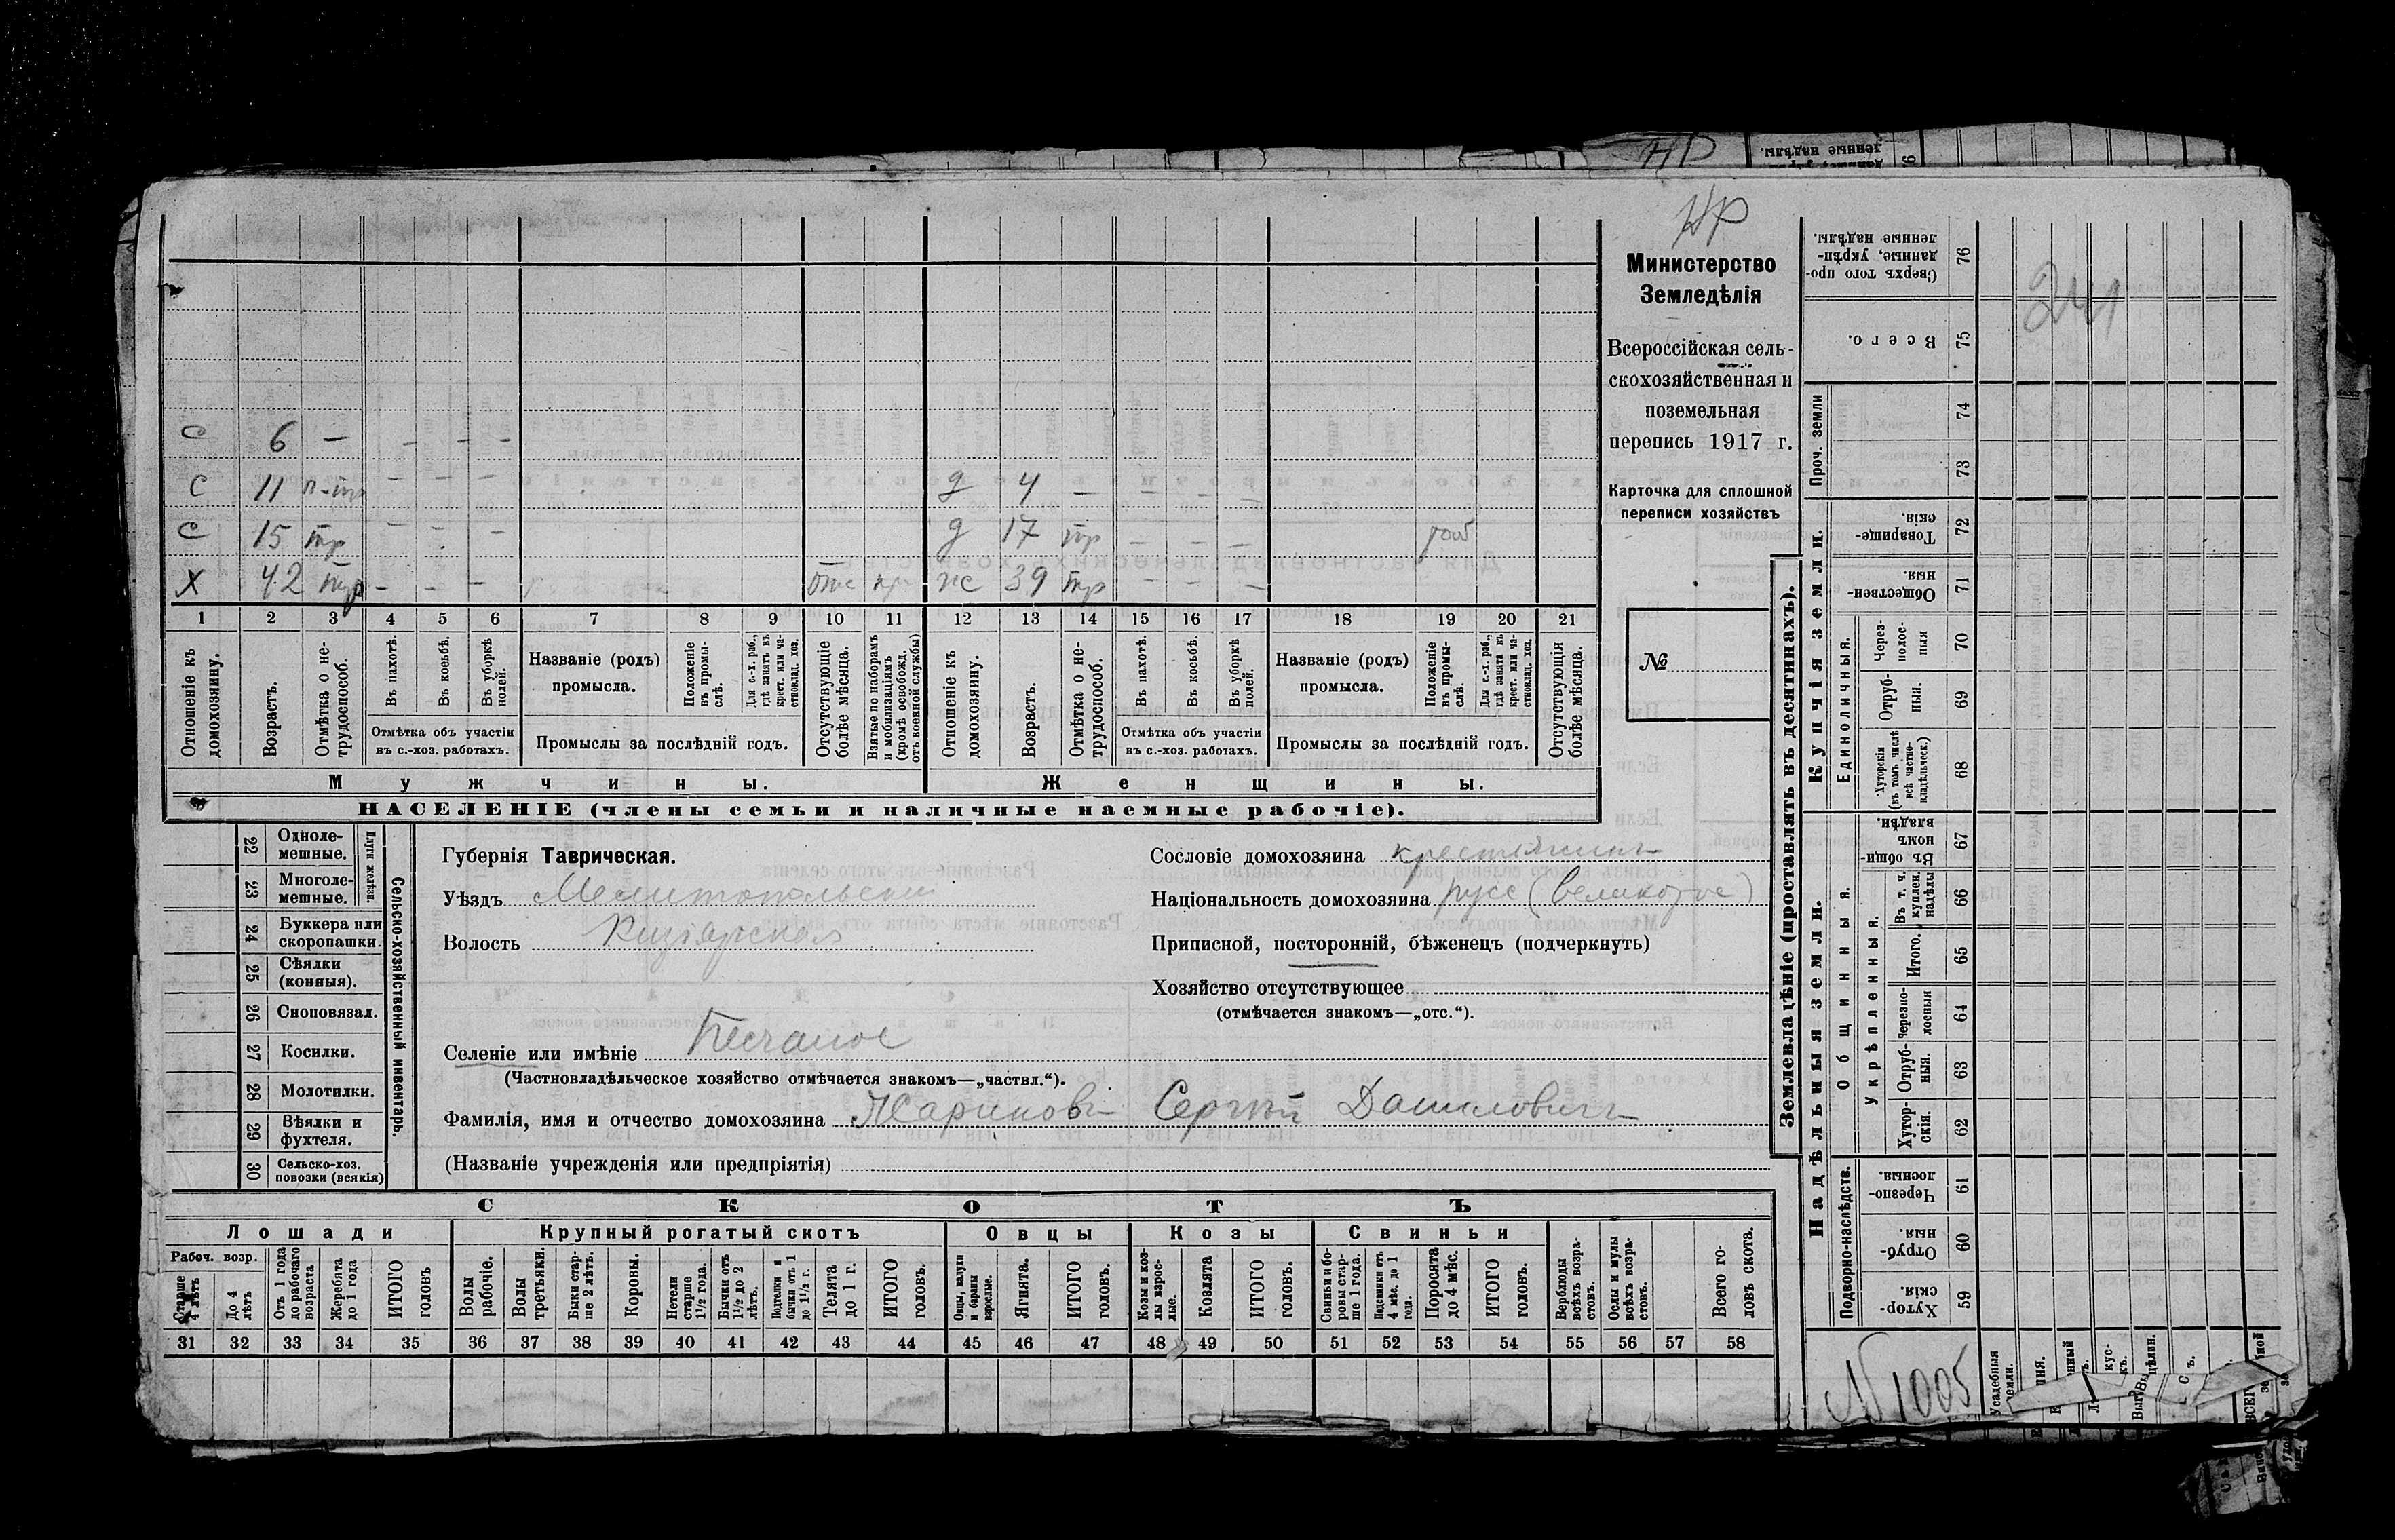 НР
Министерство
Земледѣлія
Всероссійская сель-
скохозяйственная и
поземельная
перепись 1917 г.
Карточка для сплошной
переписи хозяйствъ
№
С 6 — — — —
С 11 п-тр — — — д 4 — — — —
С 15 тр — — — д 17 тр — — —
Х 42 тр — — — отс ж 39 тр — — —
1 2 3 4 5 6 7 8 9 10 11 12 13 14 15 16 17 18 19 20 21
Отношеніе къ домохозяину.
Возрастъ.
Отмѣтка о не-трудоспособ.
Въ пахотѣ.
Въ косьбѣ.
Въ уборкѣ полей.
Отмѣтка объ участіи въ с.-хоз. работахъ.
Названіе (родъ) промысла.
Положеніе въ промы-слѣ.
Для с.-х. раб., гдѣ занятъ въ крест. или ча-стновлад. хоз.
Промыслы за послѣдній годъ.
Отсутствующіе болѣе мѣсяца.
Взятые по наборамъ и мобилизаціямъ (кромѣ освобожд. отъ военной службы)
Отношеніе къ домохозяину.
Возрастъ.
Отмѣтка о не-трудоспособ.
Въ пахотѣ.
Въ косьбѣ.
Въ уборкѣ полей.
Отмѣтка объ участіи въ с.-хоз. работахъ.
Названіе (родъ) промысла.
Положеніе въ промы-слѣ.
Для с.-х. раб., гдѣ занята въ крест. или ча-стновлад. хоз.
Промыслы за послѣдній годъ.
Отсутствующія болѣе мѣсяца.
Мужчины. Женщины.
НАСЕЛЕНІЕ (члены семьи и наличные наемные рабочіе).
22 Одноле-мешные.
23 Многоле-мешные.
Плуги желѣзн.
24 Буккера или скоропашки.
25 Сѣялки (конныя).
26 Сноповязал.
27 Косилки.
28 Молотилки.
29 Вѣялки и фухтеля.
30 Сельско-хоз. повозки (всякія)
Сельско-хозяйственный инвентарь.
Губернія Таврическая.
Уѣздъ Мелитопольскій
Волость
Селеніе или имѣніе Песчаное
(Частновладѣльческое хозяйство отмѣчается знакомъ—„частвл.“).
Фамилія, имя и отчество домохозяина Жариковъ Сергѣй Даниловичъ
(Названіе учрежденія или предпріятія)
Сословіе домохозяина крестьянинъ
Національность домохозяина русс (великорос)
Приписной, посторонній, бѣженецъ (подчеркнуть)
Хозяйство отсутствующее
(отмѣчается знакомъ—„отс.“).
СКОТЪ
Лошади Крупный рогатый скотъ Овцы Козы Свиньи
Рабоч. возр.
Старше 4 лѣтъ
До 4 лѣтъ
Отъ 1 года до рабочаго возраста
Жеребята до 1 года
ИТОГО головъ
Волы рабочіе.
Волы третьяки.
Быки стар-ше 2 лѣтъ.
Коровы.
Нетели старше 1½ года.
Бычки отъ 1½ до 2 лѣтъ.
Подтелки и бычки отъ 1 до 1½ г.
Телята до 1 г.
ИТОГО головъ.
Овцы, валухи и бараны взрослые.
Ягнята.
ИТОГО головъ.
Козы и коз-лы взрос-лые.
Козлята
ИТОГО головъ.
Свиньи и бо-ровы стар-ше 1 года.
Подсвинки отъ 4 мѣс. до 1 года.
Поросята до 4 мѣс.
ИТОГО головъ.
Верблюды всѣхъ возра-стовъ.
Ослы и мулы всѣхъ возра-стовъ.
Всего го-ловъ скота.
31 32 33 34 35 36 37 38 39 40 41 42 43 44 45 46 47 48 49 50 51 52 53 54 55 56 57 58
Землевладѣніе (проставлять въ десятинахъ).
Надѣльныя земли. Купчія земли. Проч. земли
Подворно-наслѣдств.
Общинныя.
Укрѣпленныя.
Единоличныя.
Хутор-скія. 59
Отруб-ныя. 60
Черезпо-лосныя. 61
Хутор-скія. 62
Отруб-ныя. 63
Черезпо-лосныя 64
Итого. 65
Въ т. ч. куплен. надѣлы 66
Въ общин-номъ владѣн. 67
Хуторскія (въ томъ числѣ всѣ частно-владѣльческ.) 68
Отруб-ныя. 69
Через-полос-ныя 70
Обществен-ныя. 71
Товарище-скія. 72
73
74
Всего. 75
Сверхъ того про-данные, укрѣп-ленные надѣлы. 76
241
N 1005
Усадебныя земли.